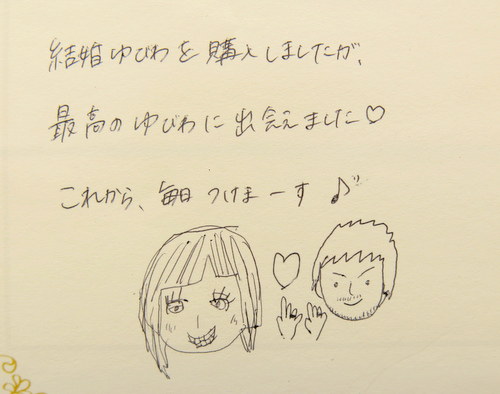 結婚ゆびわを購入しましたが、
最高のゆびわに出会えました♡
これから、毎日つけまーす♪